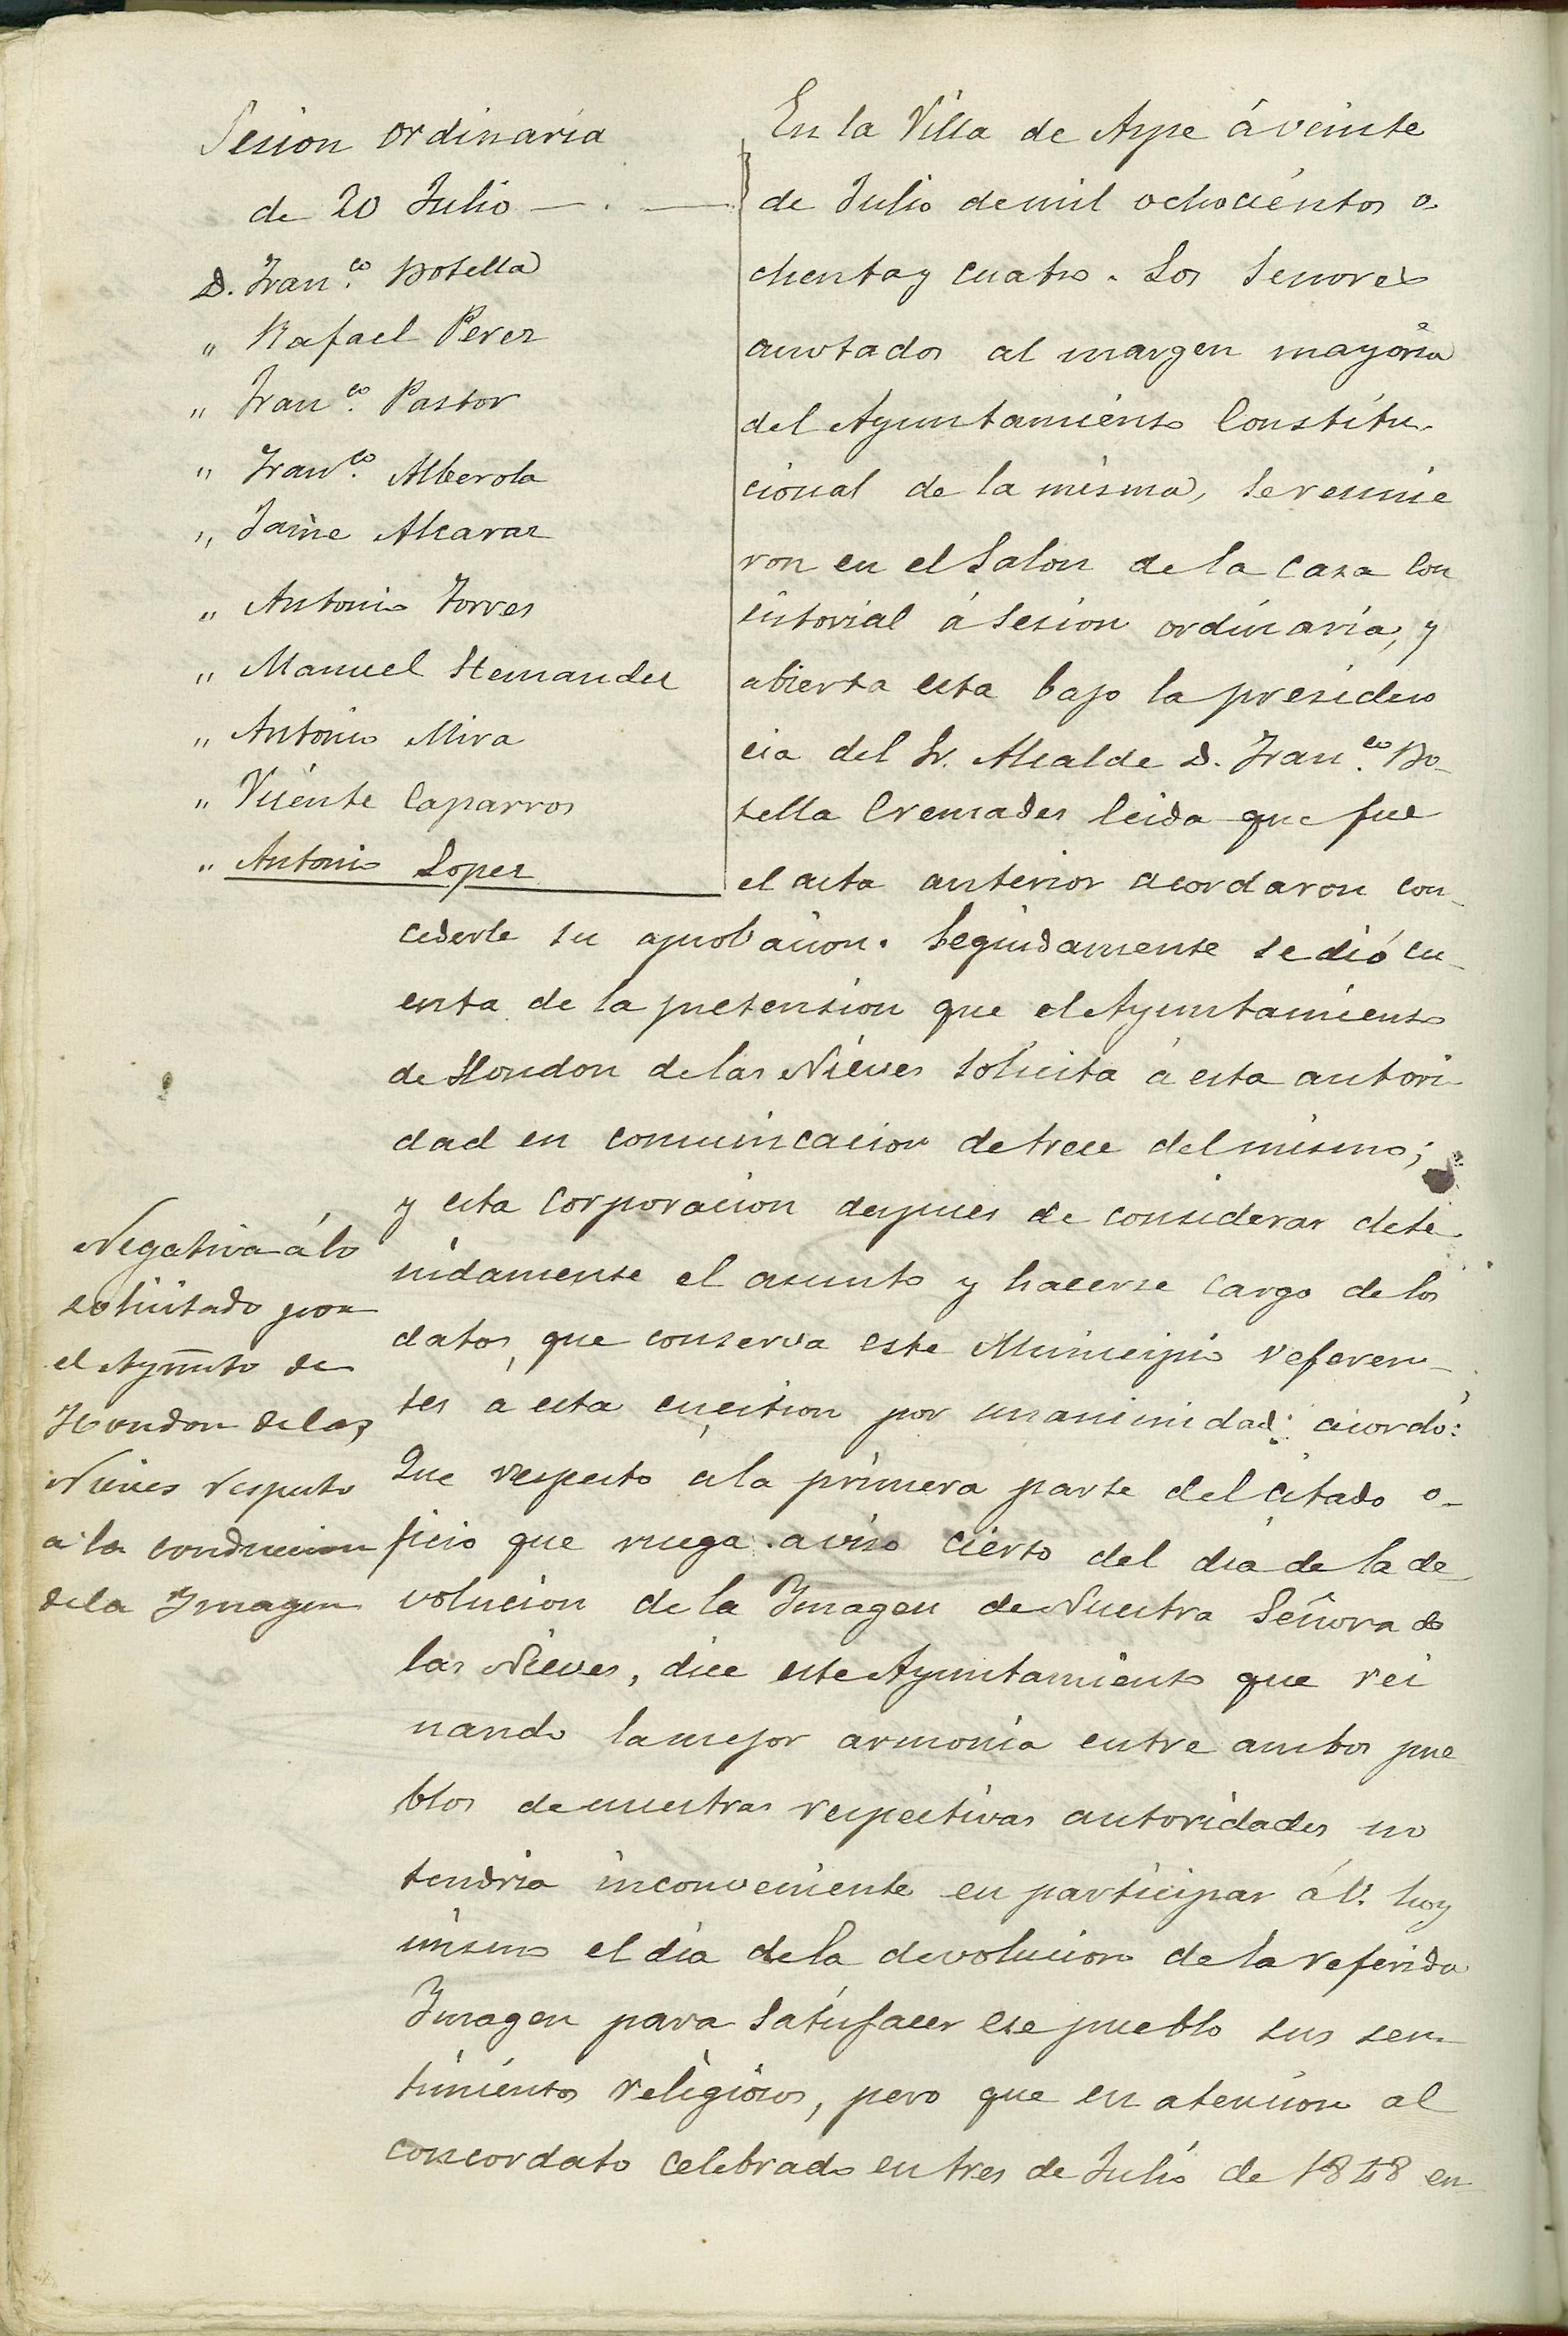 Sesion ordinaria
de 20 Julio
D. Fran.co Botella
" Rafael Perez
" Fran.co Pastor
" Fran.co Alberola
" Jaime Alcaraz
" Antonio Torres
" Manuel Hernandez
" Antonio Mira
" Vicente Caparros
" Antonio Lopez
En la Villa de Aspe á veinte
de Julio de mil ochocientos o
chenta y cuatro. Los Senores
anotados al margen mayoria
del Ayuntamiento Constitu-
cional de la misma, se reunie
ron en el Salon de la Casa Con
sistorial á Sesion ordinaria, y
abierta esta bajo la presiden
cia del Sr. Alcalde D. Fran.co Bo-
tella Cremades leida que fue
el acta anterior acordaron con-
cederle su aprobacion. Seguidamente se dió cu-
enta de la pretension que el Ayuntamiento
de Hondon de las Nieves solicita á esta autori-
dad en comunicacion de trece del mismo;
y esta Corporacion despues de considerar dete-
nidamente el asunto y hacerse cargo de los
datos, que conserva este Municipio referen-
tes á esta cuestion por unanimidad: acordó:
Que respecto á la primera parte del citado o-
ficio que ruega aviso cierto del dia de la de
volucion de la Imagen de Nuestra Señora de
las Nieves, dice este Ayuntamiento que rei
nando la mejor armonia entre ambos pue
blos de nuestras respectivas autoridades no
tendria inconveniente en participar á V. hoy
mismo el dia de la devolucion de la referida
Imagen para satisfacer ese pueblo sus sen-
timientos religiosos, pero que en atencion al
concordato celebrado en tres de Julio de 1848 en
Negativa á lo
solicitado por
el Aymto de
Hondon de las
Nieves respecto
a la conduccion
de la Imagen